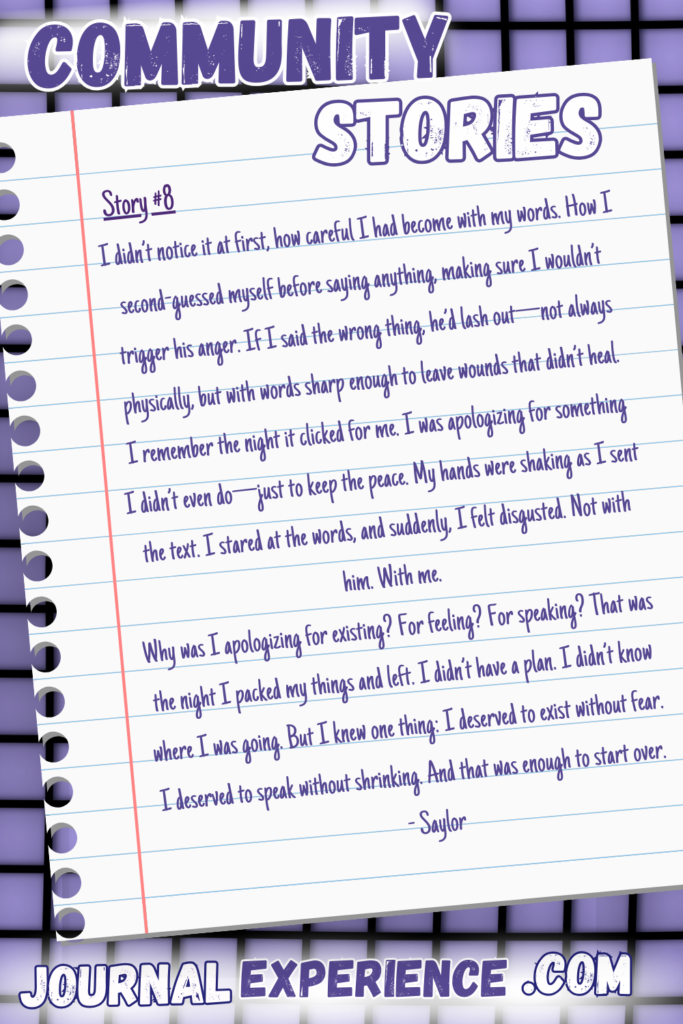 COMMUNITY
STORIES
Story #8
I didn't notice it at first, how careful I had become with my words. How I
second-guessed myself before saying anything, making sure I wouldn't
trigger his anger. If I said the wrong thing, he'd lash out—not always
physically, but with words sharp enough to leave wounds that didn't heal.
I remember the night it clicked for me. I was apologizing for something
I didn't even do—just to keep the peace. My hands were shaking as I sent
the text. I stared at the words, and suddenly, I felt disgusted. Not with
him. With me.
Why was I apologizing for existing? For feeling? For speaking? That was
the night I packed my things and left. I didn't have a plan. I didn't know
where I was going. But I knew one thing: I deserved to exist without fear.
I deserved to speak without shrinking. And that was enough to start over.
- Saylor
JOURNAL EXPERIENCE .COM